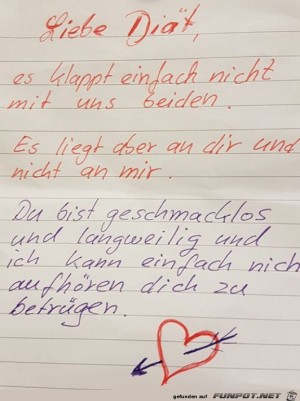 Liebe Diät,
es klappt einfach nicht
mit uns beiden.
Es liegt aber an dir und
nicht an mir.
Du bist geschmacklos
und langweilig und
ich kann einfach nich
aufhören dich zu
betrügen.
gefunden auf FUNPOT.NET